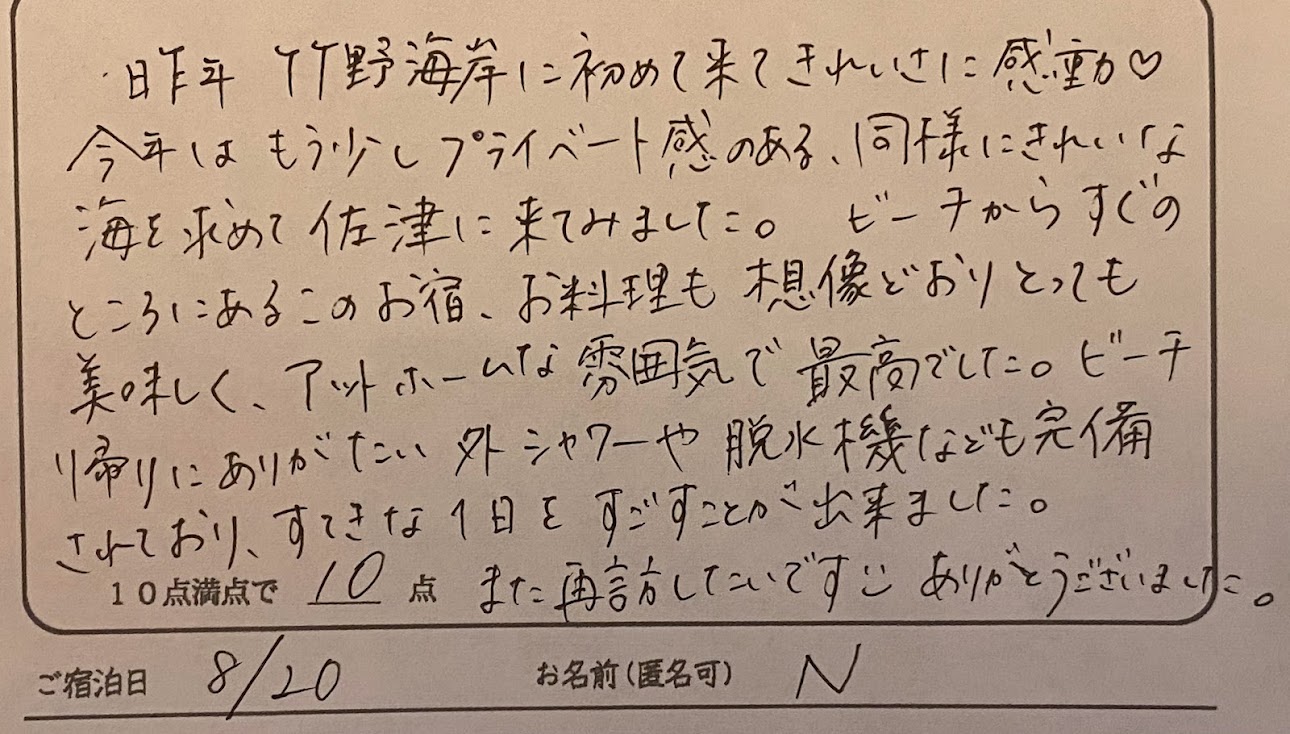 昨年 竹野海岸に初めて来てきれいさに感動♡
今年はもう少しプライベート感のある、同様にきれいな
海を求めて佐津に来てみました。 ビーチからすぐの
ところにあるこのお宿、お料理も想像どおりとっても
美味しく、アットホームな雰囲気で最高でした。ビーチ
帰りにありがたい外シャワーや脱水機なども完備
されており、すてきな1日をすごすことが出来ました。
10点満点で 10 点 また再訪したいです ありがとうございました。
ご宿泊日 8/20 お名前(匿名可) N